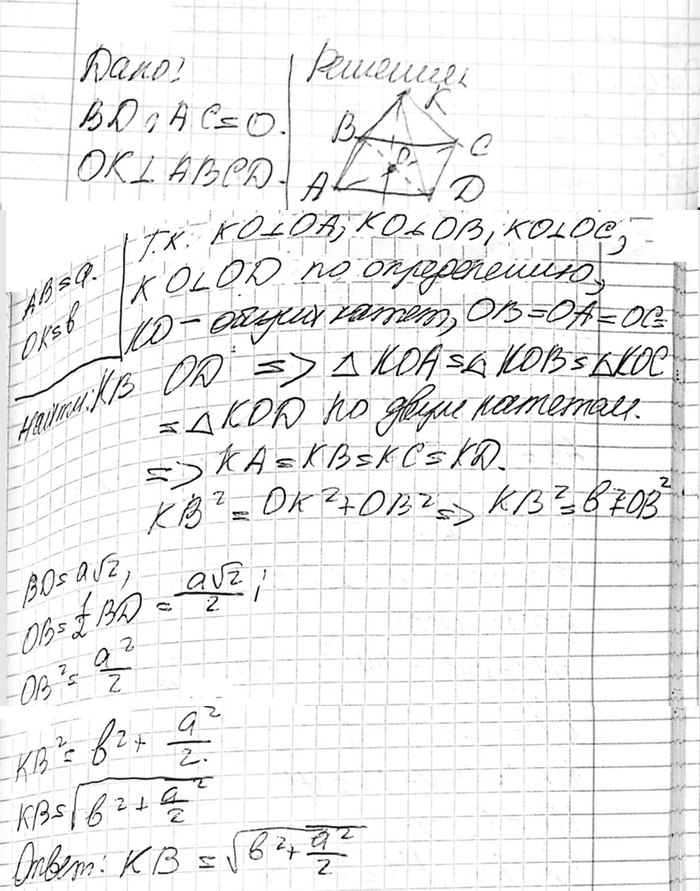 Дано:
BD ∩ AC = O.
OK ⊥ ABCD.
AB = a.
OK = b
Найти: KB
Решение:
K
B
C
O
A
D
т.к. KO⊥OA, KO⊥OB, KO⊥OC,
KO⊥OD по определению,
KO – общий катет, OB = OA = OC =
OD => △KOA = △KOB = △KOC
= △KOD по двум катетам.
=> KA = KB = KC = KD.
KB² = OK² + OB² => KB² = b² + OB²
BD = a√2,
OB = 1/2 BD = a√2/2;
OB² = a²/2
KB² = b² + a²/2.
KB = √(b² + a²/2)
Ответ: KB = √(b² + a²/2)